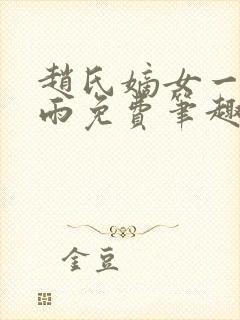 趙氏嫡女一
雨免費筆趣
金豆